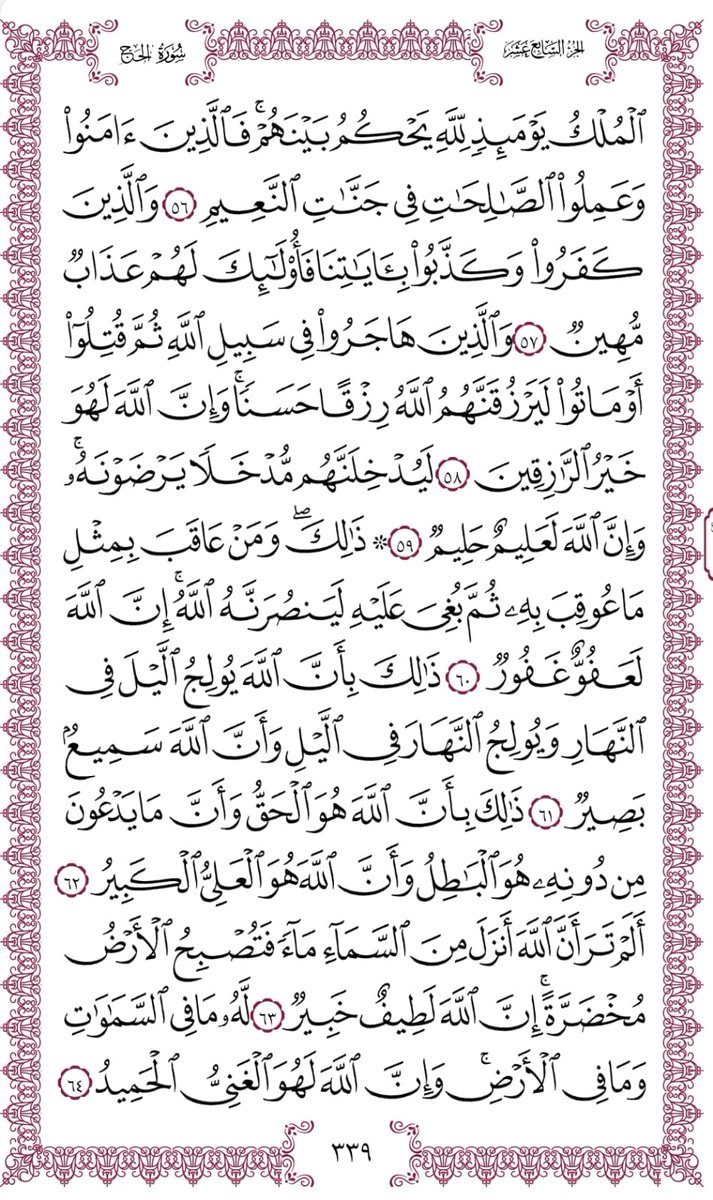 الجزء السابع عشر
سورة الحج
ٱلْمُلْكُ يَوْمَئِذٍ لِّلَّهِ يَحْكُمُ بَيْنَهُمْ ۚ فَٱلَّذِينَ ءَامَنُوا۟
وَعَمِلُوا۟ ٱلصَّـٰلِحَـٰتِ فِى جَنَّـٰتِ ٱلنَّعِيمِ ٥٦ وَٱلَّذِينَ
كَفَرُوا۟ وَكَذَّبُوا۟ بِـَٔايَـٰتِنَا فَأُو۟لَـٰٓئِكَ لَهُمْ عَذَابٌ
مُّهِينٌ ٥٧ وَٱلَّذِينَ هَاجَرُوا۟ فِى سَبِيلِ ٱللَّهِ ثُمَّ قُتِلُوٓا۟
أَوْ مَاتُوا۟ لَيَرْزُقَنَّهُمُ ٱللَّهُ رِزْقًا حَسَنًا ۚ وَإِنَّ ٱللَّهَ لَهُوَ
خَيْرُ ٱلرَّٰزِقِينَ ٥٨ لَيُدْخِلَنَّهُم مُّدْخَلًا يَرْضَوْنَهُۥ ۗ
وَإِنَّ ٱللَّهَ لَعَلِيمٌ حَلِيمٌ ٥٩ ۞ ذَٰلِكَ ۖ وَمَنْ عَاقَبَ بِمِثْلِ
مَا عُوقِبَ بِهِۦ ثُمَّ بُغِىَ عَلَيْهِ لَيَنصُرَنَّهُ ٱللَّهُ ۗ إِنَّ ٱللَّهَ
لَعَفُوٌّ غَفُورٌ ٦٠ ذَٰلِكَ بِأَنَّ ٱللَّهَ يُولِجُ ٱلَّيْلَ فِى
ٱلنَّهَارِ وَيُولِجُ ٱلنَّهَارَ فِى ٱلَّيْلِ وَأَنَّ ٱللَّهَ سَمِيعٌۢ
بَصِيرٌ ٦١ ذَٰلِكَ بِأَنَّ ٱللَّهَ هُوَ ٱلْحَقُّ وَأَنَّ مَا يَدْعُونَ
مِن دُونِهِۦ هُوَ ٱلْبَـٰطِلُ وَأَنَّ ٱللَّهَ هُوَ ٱلْعَلِىُّ ٱلْكَبِيرُ ٦٢
أَلَمْ تَرَ أَنَّ ٱللَّهَ أَنزَلَ مِنَ ٱلسَّمَآءِ مَآءً فَتُصْبِحُ ٱلْأَرْضُ
مُخْضَرَّةً ۗ إِنَّ ٱللَّهَ لَطِيفٌ خَبِيرٌ ٦٣ لَّهُۥ مَا فِى ٱلسَّمَـٰوَٰتِ
وَمَا فِى ٱلْأَرْضِ ۗ وَإِنَّ ٱللَّهَ لَهُوَ ٱلْغَنِىُّ ٱلْحَمِيدُ ٦٤
٣٣٩